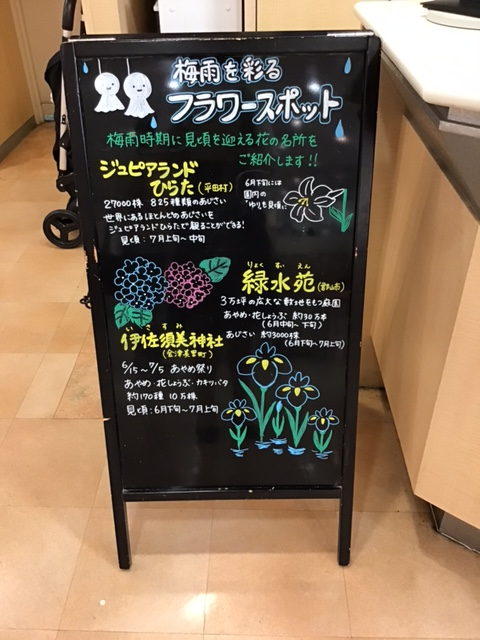 梅雨を彩る
フラワースポット
梅雨時期に見頃を迎える花の名所を
ご紹介します!!
ジュピアランド
ひらた(平田村)
27000株 825種類のあじさい
世界にあるほとんどのあじさいを
ジュピアランドひらたで観ることができる!
見頃:7月上旬〜中旬
6月下旬には
園内の
ゆりも見頃に
りょく すい えん
緑水苑(郡山市)
3万坪の広大な敷地をもつ庭園
あやめ・花しょうぶ 約30万本
(6月中旬〜下旬)
あじさい 約3000株
(6月下旬〜7月上旬)
いさすみ
伊佐須美神社
(会津美里町)
6/15〜7/5 あやめ祭り
あやめ・花しょうぶ・カキツバタ
約170種 10万株
見頃:6月下旬〜7月上旬